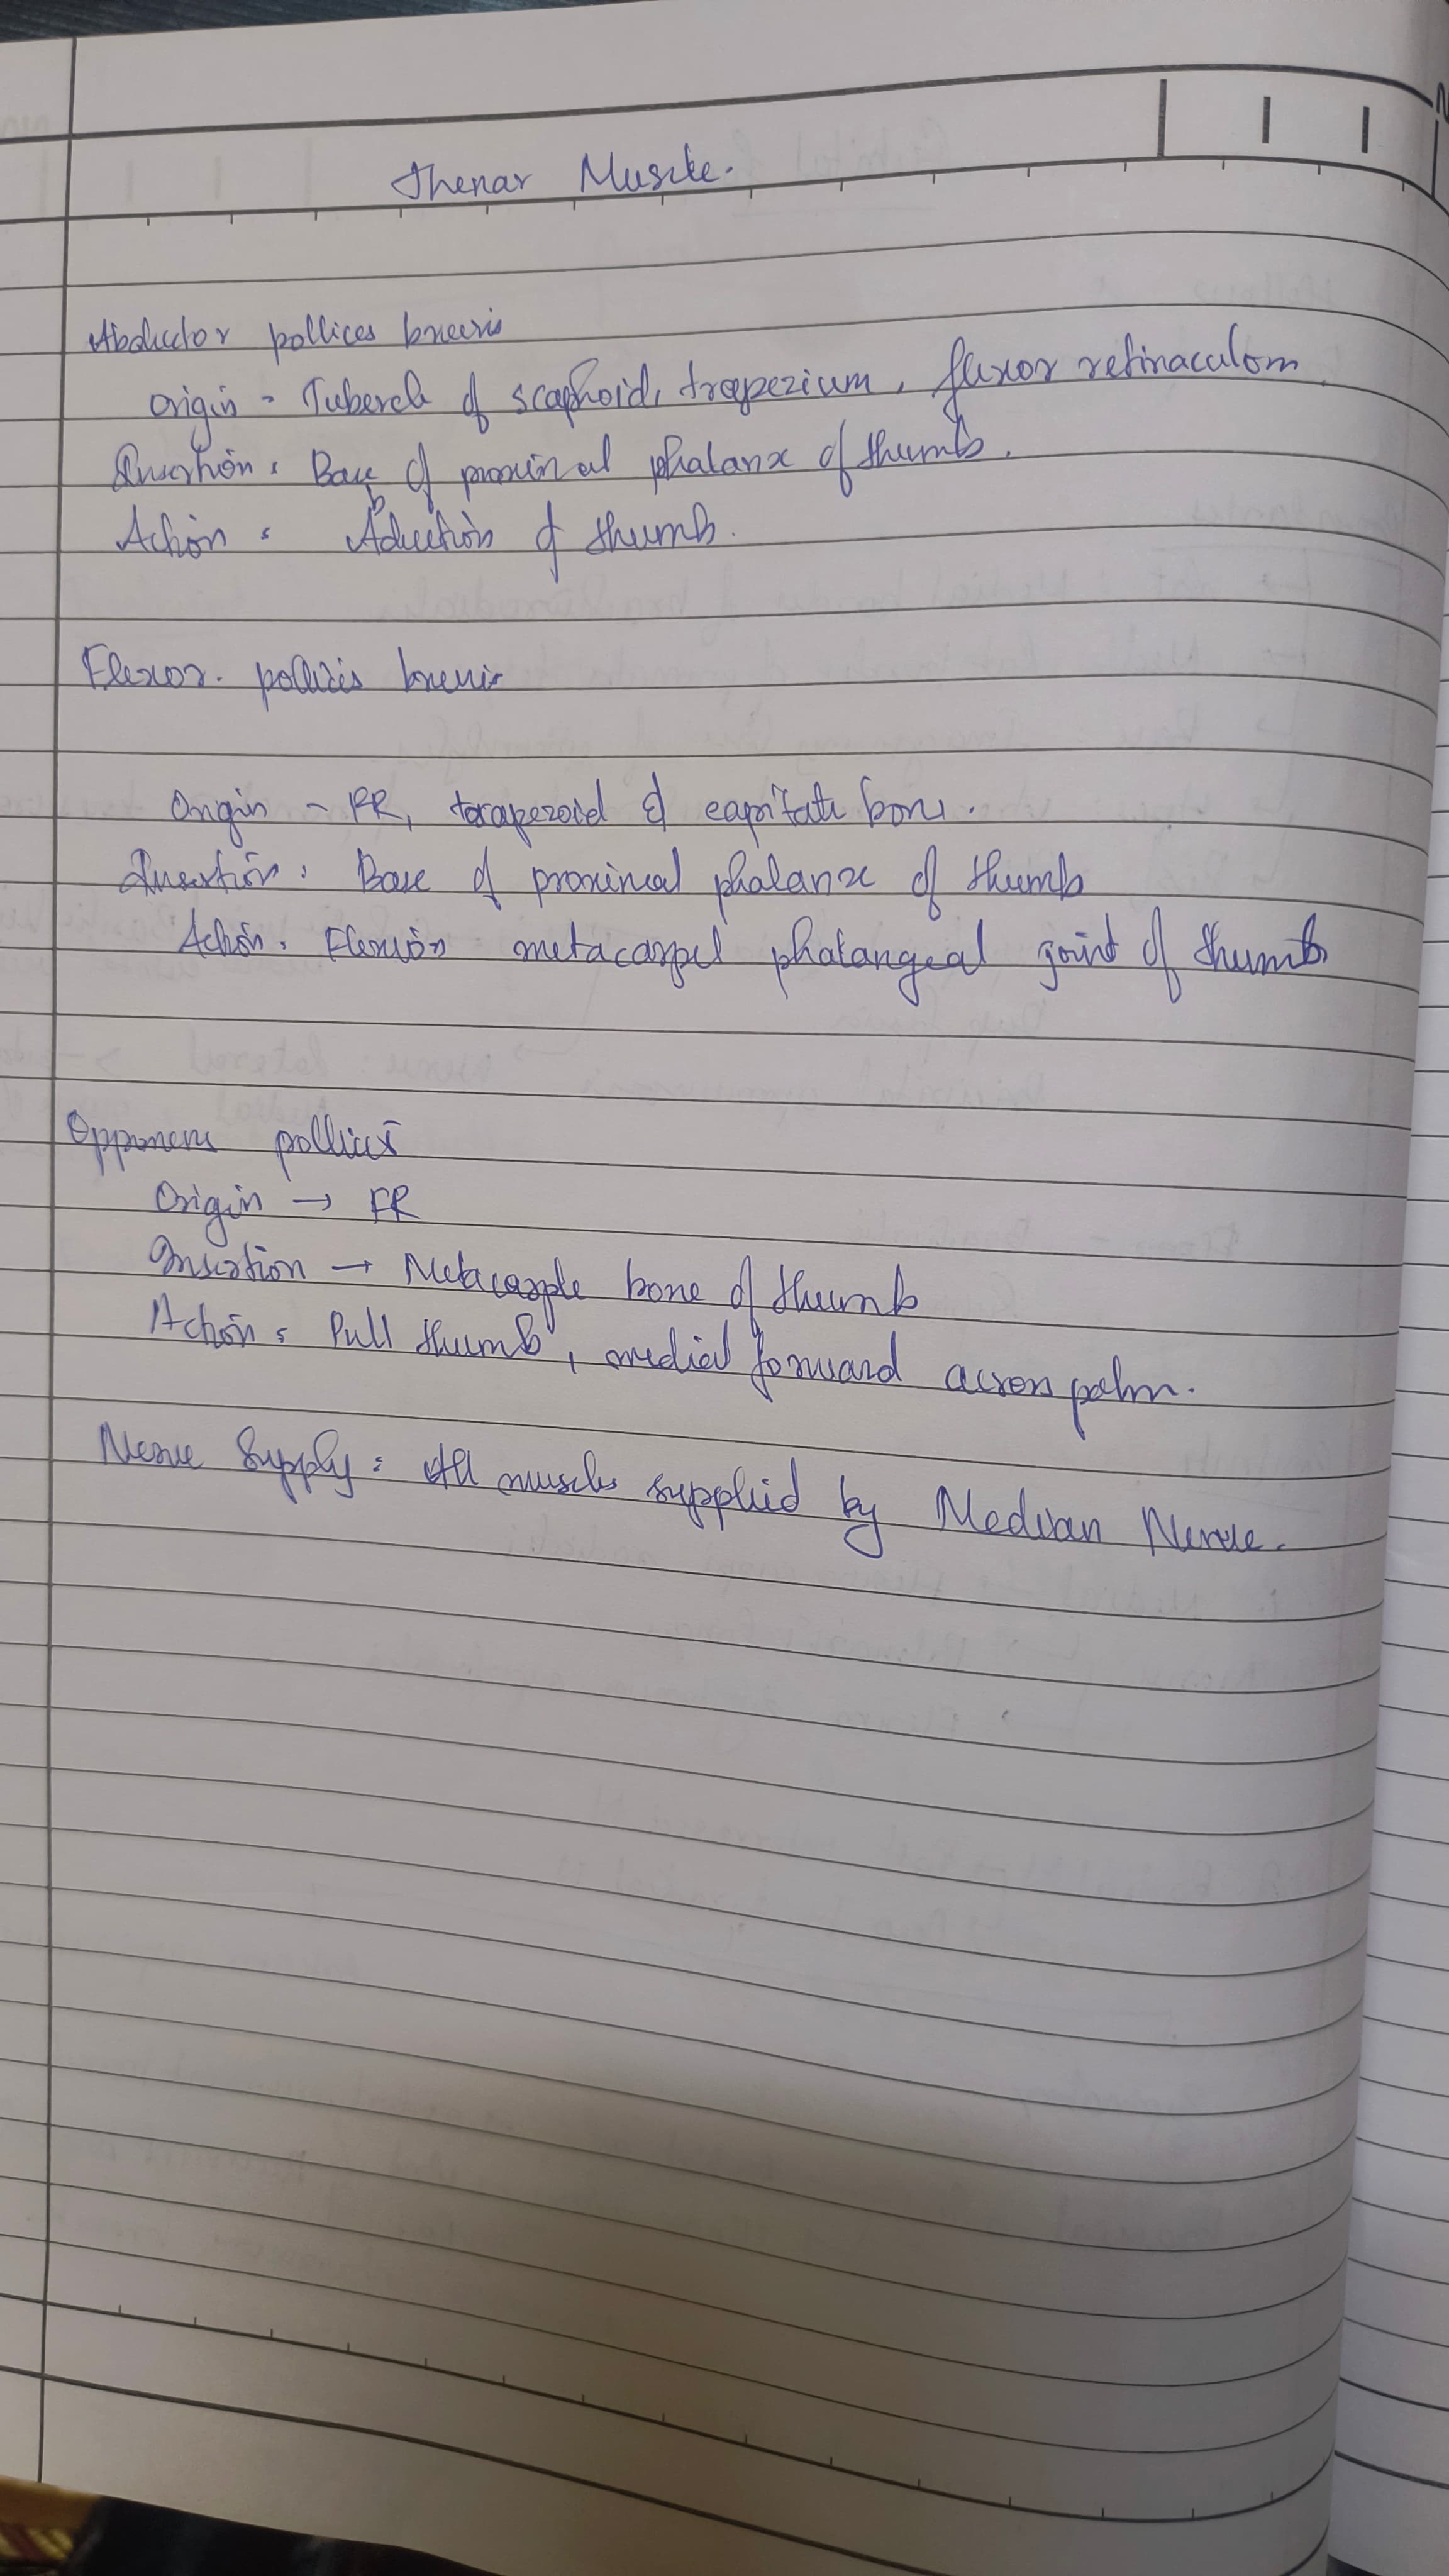 Thenar Muscle.
Abductor pollices brevis
origin - Tubercle of scaphoid, trapezium, flexor retinaculom
Insertion : Base of proximal phalanx of thumb.
Action : Abduction of thumb.
Flexor. pollicis brevis
Origin - FR, trapezoid & capitate bone.
Insertion : Base of proximal phalanx of thumb
Action : Flexion metacarpel phalangeal joint of thumb
Opponens pollicis
Origin → FR
Insertion → Metacarple bone of thumb
Action : Pull thumb, medial forward across palm.
Nerve Supply : All muscles supplied by Median Nerve.